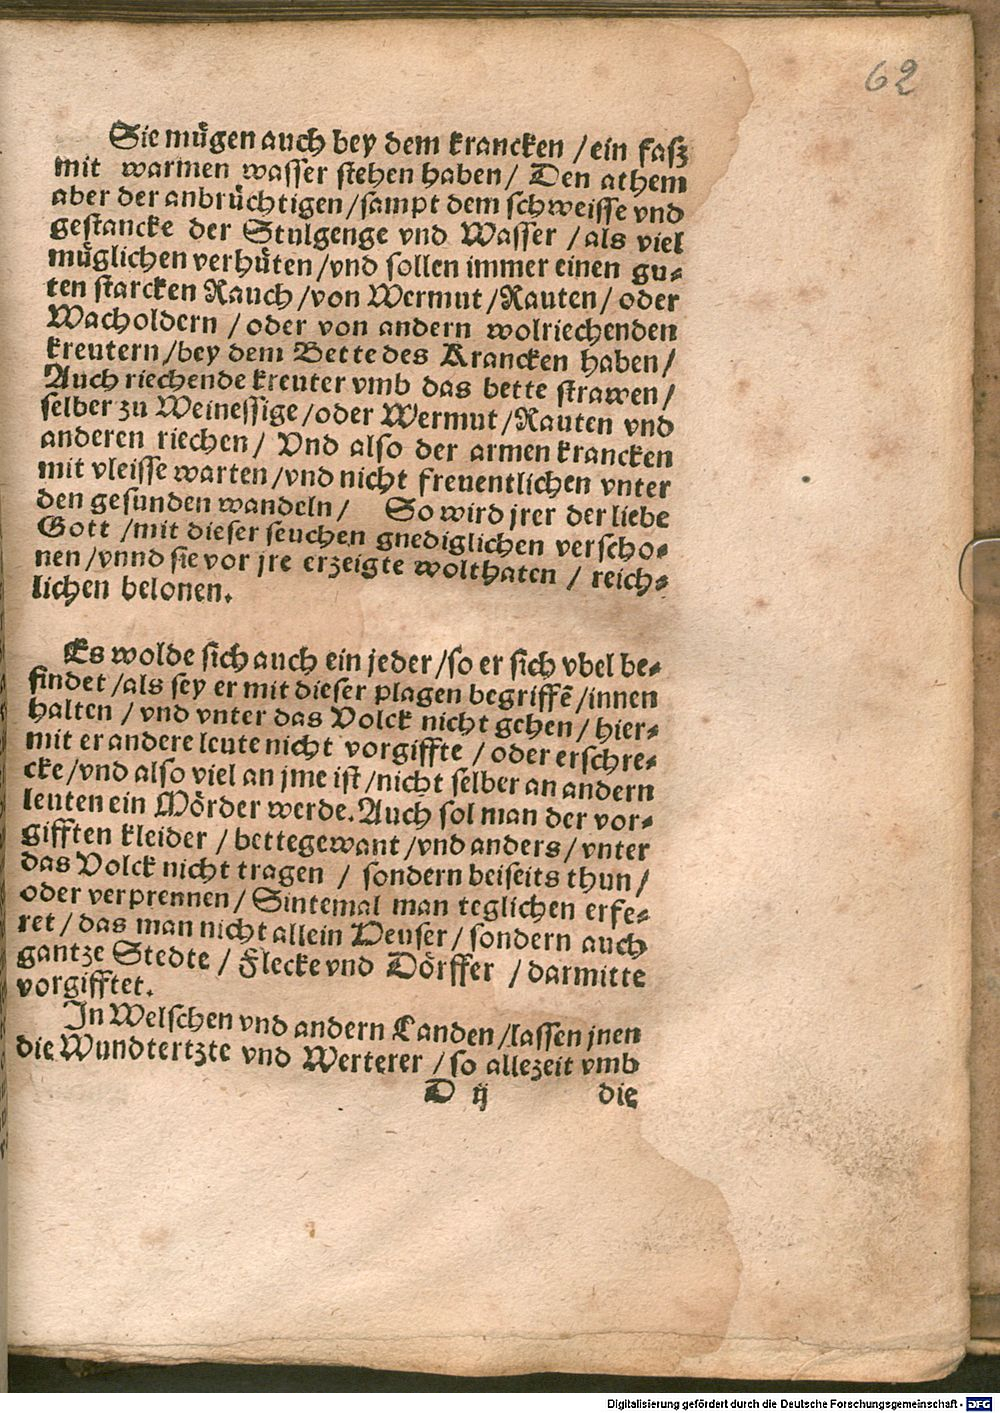 62
Sie mügen auch bey dem krancken / ein faß
mit warmen wasser stehen haben / Den athem
aber der anbrüchtigen / sampt dem schweisse vnd
gestancke der Stulgenge vnd Wasser / als viel
müglichen verhüten / vnd sollen immer einen gu-
ten starcken Rauch / von Wermut / Rauten / oder
Wacholdern / oder von andern wolriechenden
kreutern / bey dem Bette des Krancken haben /
Auch riechende kreuter vmb das bette strawen /
selber zu Weinessige / oder Wermut / Rauten vnd
anderen riechen / Vnd also der armen krancken
mit vleisse warten / vnd nicht freuentlichen vnter
den gesunden wandeln / So wird jrer der liebe
Gott / mit dieser seuchen gnediglichen verscho-
nen / vnnd sie vor jre erzeigte wolthaten / reich-
lichen belonen.
Es wolde sich auch ein jeder / so er sich vbel be-
findet / als sey er mit dieser plagen begriffē / innen
halten / vnd vnter das Volck nicht gehen / hier-
mit er andere leute nicht vorgiffte / oder erschre-
cke / vnd also viel an jme ist / nicht selber an andern
leuten ein Mörder werde. Auch sol man der vor-
gifften kleider / bettegewant / vnd anders / vnter
das Volck nicht tragen / sondern beiseits thun /
oder verprennen / Sintemal man teglichen erfe-
ret / das man nicht allein Heuser / sondern auch
gantze Stedte / Flecke vnd Dörffer / darmitte
vorgifftet.
In Welschen vnd andern Landen / lassen jnen
die Wundtertzte vnd Werterer / so allezeit vmb
D ij die
Digitalisierung gefördert durch die Deutsche Forschungsgemeinschaft - DFG